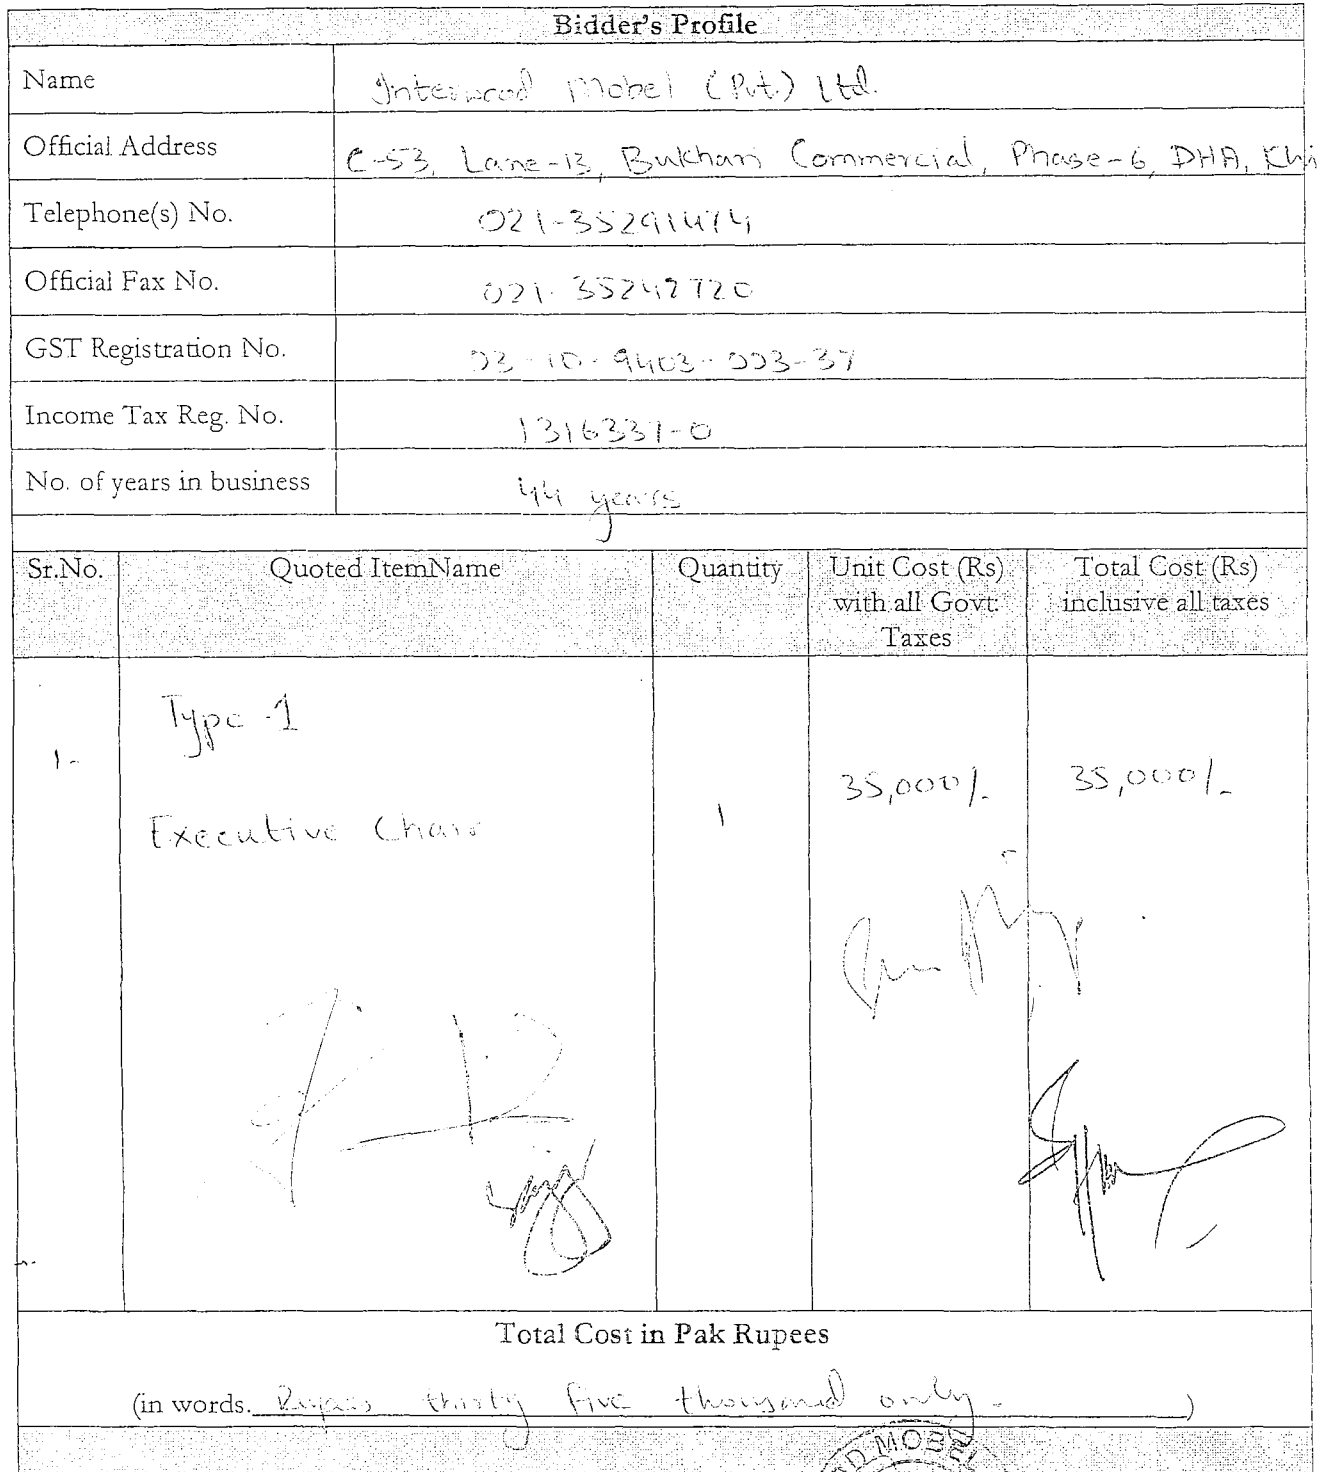 Bidder's Profile
Name Interwood Mobel (Pvt.) Ltd.
Official Address C-53, Lane-13, Bukhari Commercial, Phase-6, DHA, Khi
Telephone(s) No. 021-35291474
Official Fax No. 021-35242720
GST Registration No. 03-10-9403-003-37
Income Tax Reg. No. 1316337-0
No. of years in business 44 years
Sr.No. Quoted ItemName Quantity Unit Cost (Rs) with all Govt: Taxes Total Cost (Rs) inclusive all taxes
Type-1
1- Executive Chair 1 35,000/- 35,000/-
Total Cost in Pak Rupees
(in words. Rupees thirty five thousand only- )